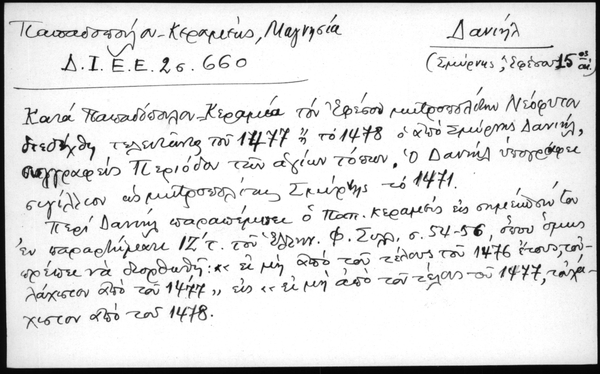 Παπαδοπούλου-Κεραμεύς, Μαγνησία
Δ.Ι.Ε.Ε. 2 σ. 660
Δανιήλ
(Σμύρνης, Ἐφέσου 15ος αἰ.)
Κατά Παπαδόπουλον-Κεραμέα τόν Ἐφέσου μητροπολίτην Νεόφυτον
διεδέχθη τελευτῶντος τοῦ 1477 ἤ τό 1478 ὁ ἀπό Σμύρνης Δανιήλ,
συγγραφεύς Περιόδου τῶν ἁγίων τόπων. Ὁ Δανιήλ ὑπογράφει
σιγίλλιον ὡς μητροπολίτης Σμύρνης τό 1471.
Περί Δανιήλ παραπέμπει ὁ Παπ. Κεραμεύς εἰς σημείωσίν του
ἐν παραρτήματι ΙΖ΄ τ. τοῦ Ἑλλην. Φ. Συλλ. σ. 54-56, ὅπου ὅμως
πρέπει νά διορθωθῇ: «εἰ μή ἀπό τοῦ τέλους τοῦ 1476 ἔτους, τοὐ-
λάχιστον ἀπό τοῦ 1477» εἰς «εἰ μή ἀπό τοῦ τέλους τοῦ 1477, τοὐλά-
χιστον ἀπό τοῦ 1478.